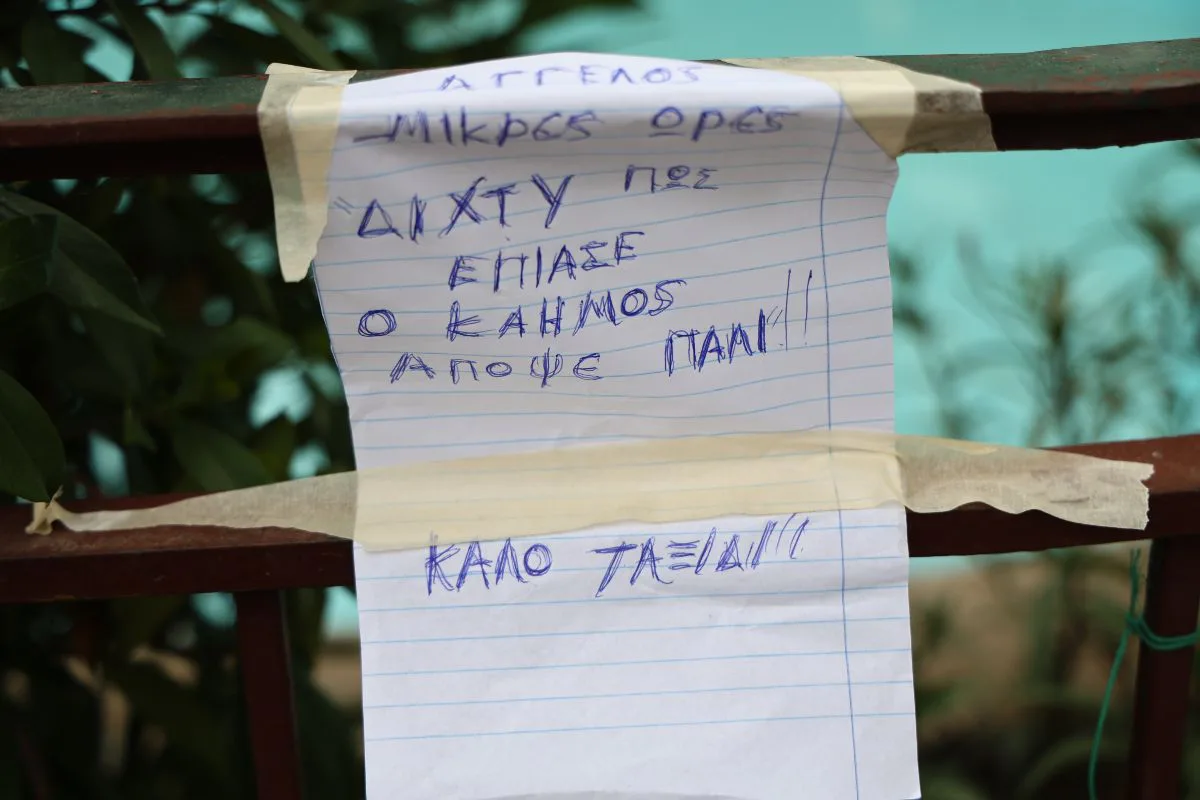 ΑΓΓΕΛΟΣ
ΜΙΚΡΕΣ ΩΡΕΣ
ΔΙΧΤΥ ΠΩΣ
ΕΠΙΑΣΕ
Ο ΚΑΗΜΟΣ
ΑΠΟΨΕ ΠΑΛΙ!!
ΚΑΛΟ ΤΑΞΙΔΙ!!